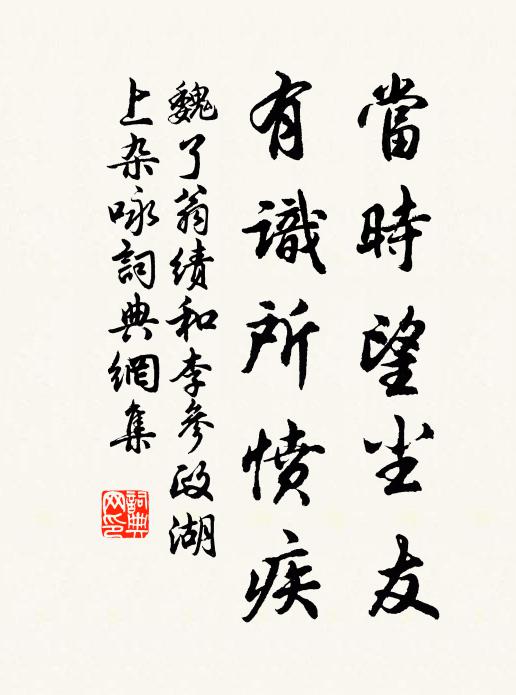 當時望尘友
有識所憤疾
魏了翁續和李參政湖
上杂咏詞典網集
詞典网印